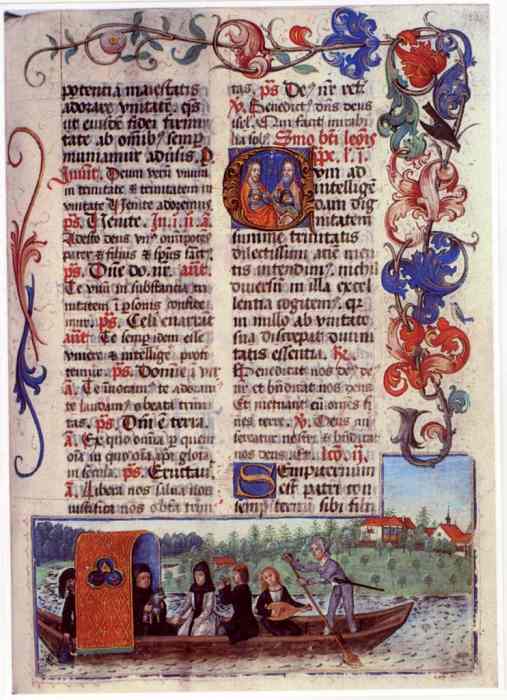 potentia maiestatis
adorare vnitatē. eius
ut eiusdē fidei firmi
tate ab omībꝫ semp
muniamur aduersis. P.
Inuit. Deum verū vnum
in trinitate & trinitatem in
vnitate Venite adoremus
ps. Venite. In. i. n. a.
Adesto deus vnꝰ omnipotēs
pater & filius & spūs sanctꝰ
ps. Dñe. do. nr. ant.
Te vnū in substantia tri
nitatem ī psonis confite
mur. ps. Celi enarrāt
ant. Te semp idem esse
viuere & intelligē profi
temur. ps. Domini ē ter
a. Te inuocamꝰ te adoramꝰ
te laudamꝰ o beata trini
tas. ps. Dñi ē terra.
a. Ex quo omīa p quem
oīa in quo oīa ipi gloria
in secula. ps. Eructauit
a. Libera nos salua nos
iustifica nos o bta trini
tas. ps. Deꝰ nr ref.
V. Benedictꝰ dns deus
isrl. Qui facit mirabi
lia solꝰ. Smo bti legis
ppe. l. i.
vm ad
intelligē
dam dig
nitatem
summe trinitatis
dilectissimi acie men
tis intendimꝰ. nichil
diuersū in illa excel
lentia cogitemꝰ. qr
in nullo ab vnitate
sua discrepat diuini
tatis essentia. Re.
Benedicat nos deꝰ de
nr et bndicat nos deus
Et metuant eū omēs fi
nes terre. V. Deus mi
sereatur nostri & bndicat
nos deus. Et. Lco. ij.
Sempiternum
est patri con
sempiterna sibi filii